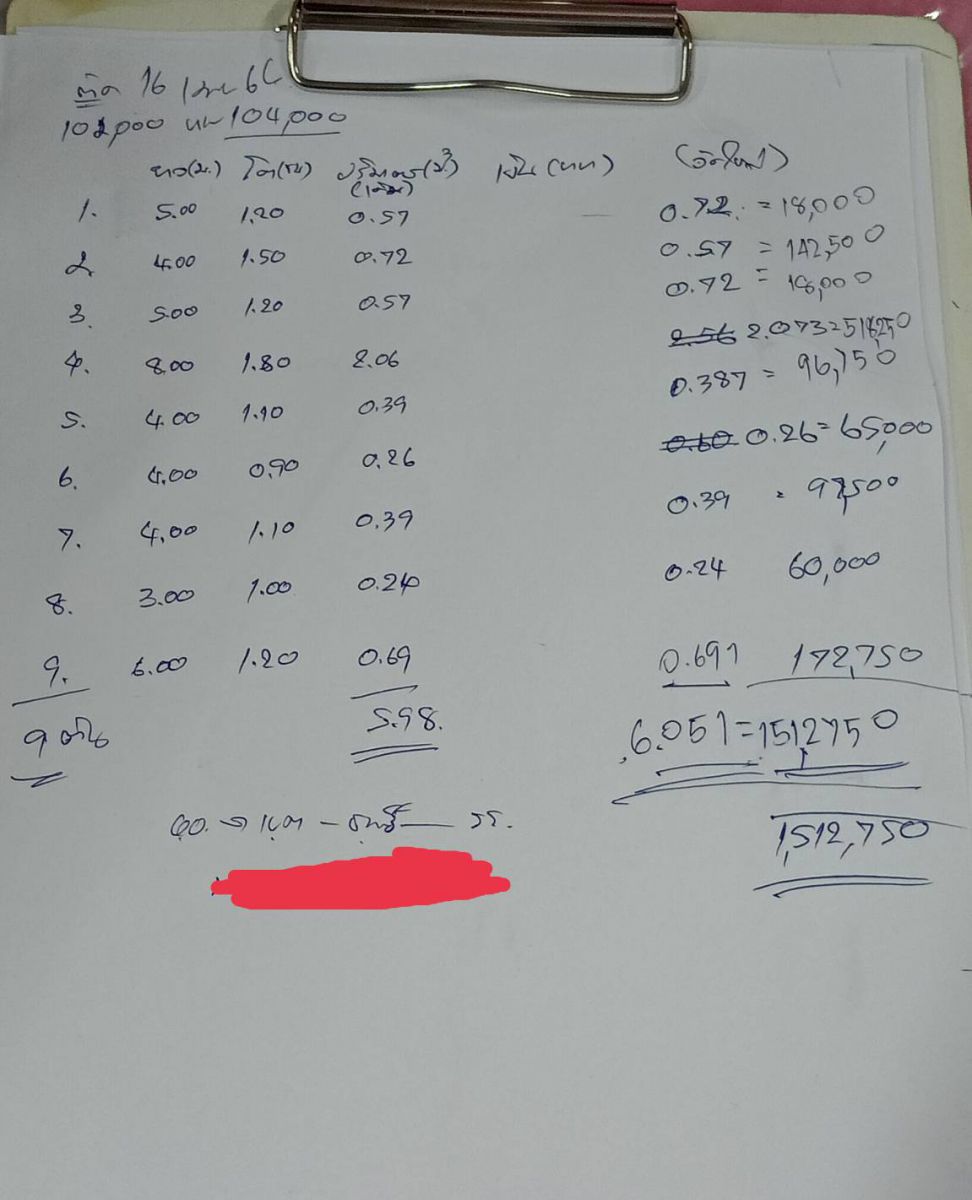 ตัด 16 เมย 6
102,000 104,000
ยาว(ม.) โต(รอบ) ปริมาตร(ม³) เงิน(บาท) (วัดใหม่)
(เดิม)
1. 5.00 1.20 0.57 0.72 = 18,000
2 4.00 1.50 0.72 0.57 = 142,500
3. 5.00 1.20 0.57 0.72 = 18,000
4. 8.00 1.80 2.06 2.56 2.073=518,250
5. 4.00 1.10 0.39 0.387 = 96,750
6. 4.00 0.90 0.26 0.60 0.26=65,000
7. 4.00 1.10 0.39 0.39 = 97,500
8. 3.00 1.00 0.24 0.24 60,000
9. 6.00 1.20 0.69 0.691 172,750
9 ต้น 5.98. 6.051=1512750
1,512,750